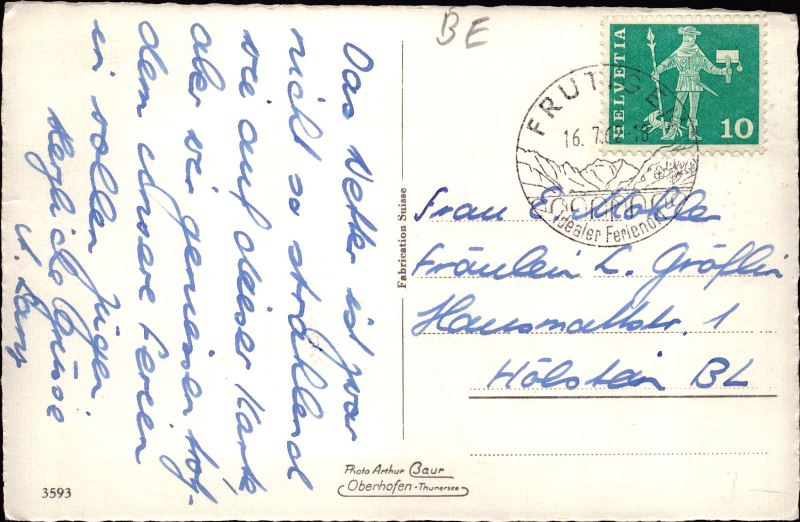 BE
HELVETIA
10
FRUTIGEN
16. 7. 6
Idealer Ferienort
Das Wetter ist zwar
nicht so strahlend
wie auf dieser Karte
aber wir geniessen trotz-
dem unsere Ferien
in vollen Zügen
Herzliche Grüsse
Fabrication Suisse
Frau
Fräulein L. Gräflin
Hausmattstr. 1
Hölstein BL
Photo Arthur Baur
Oberhofen-Thunersee
3593